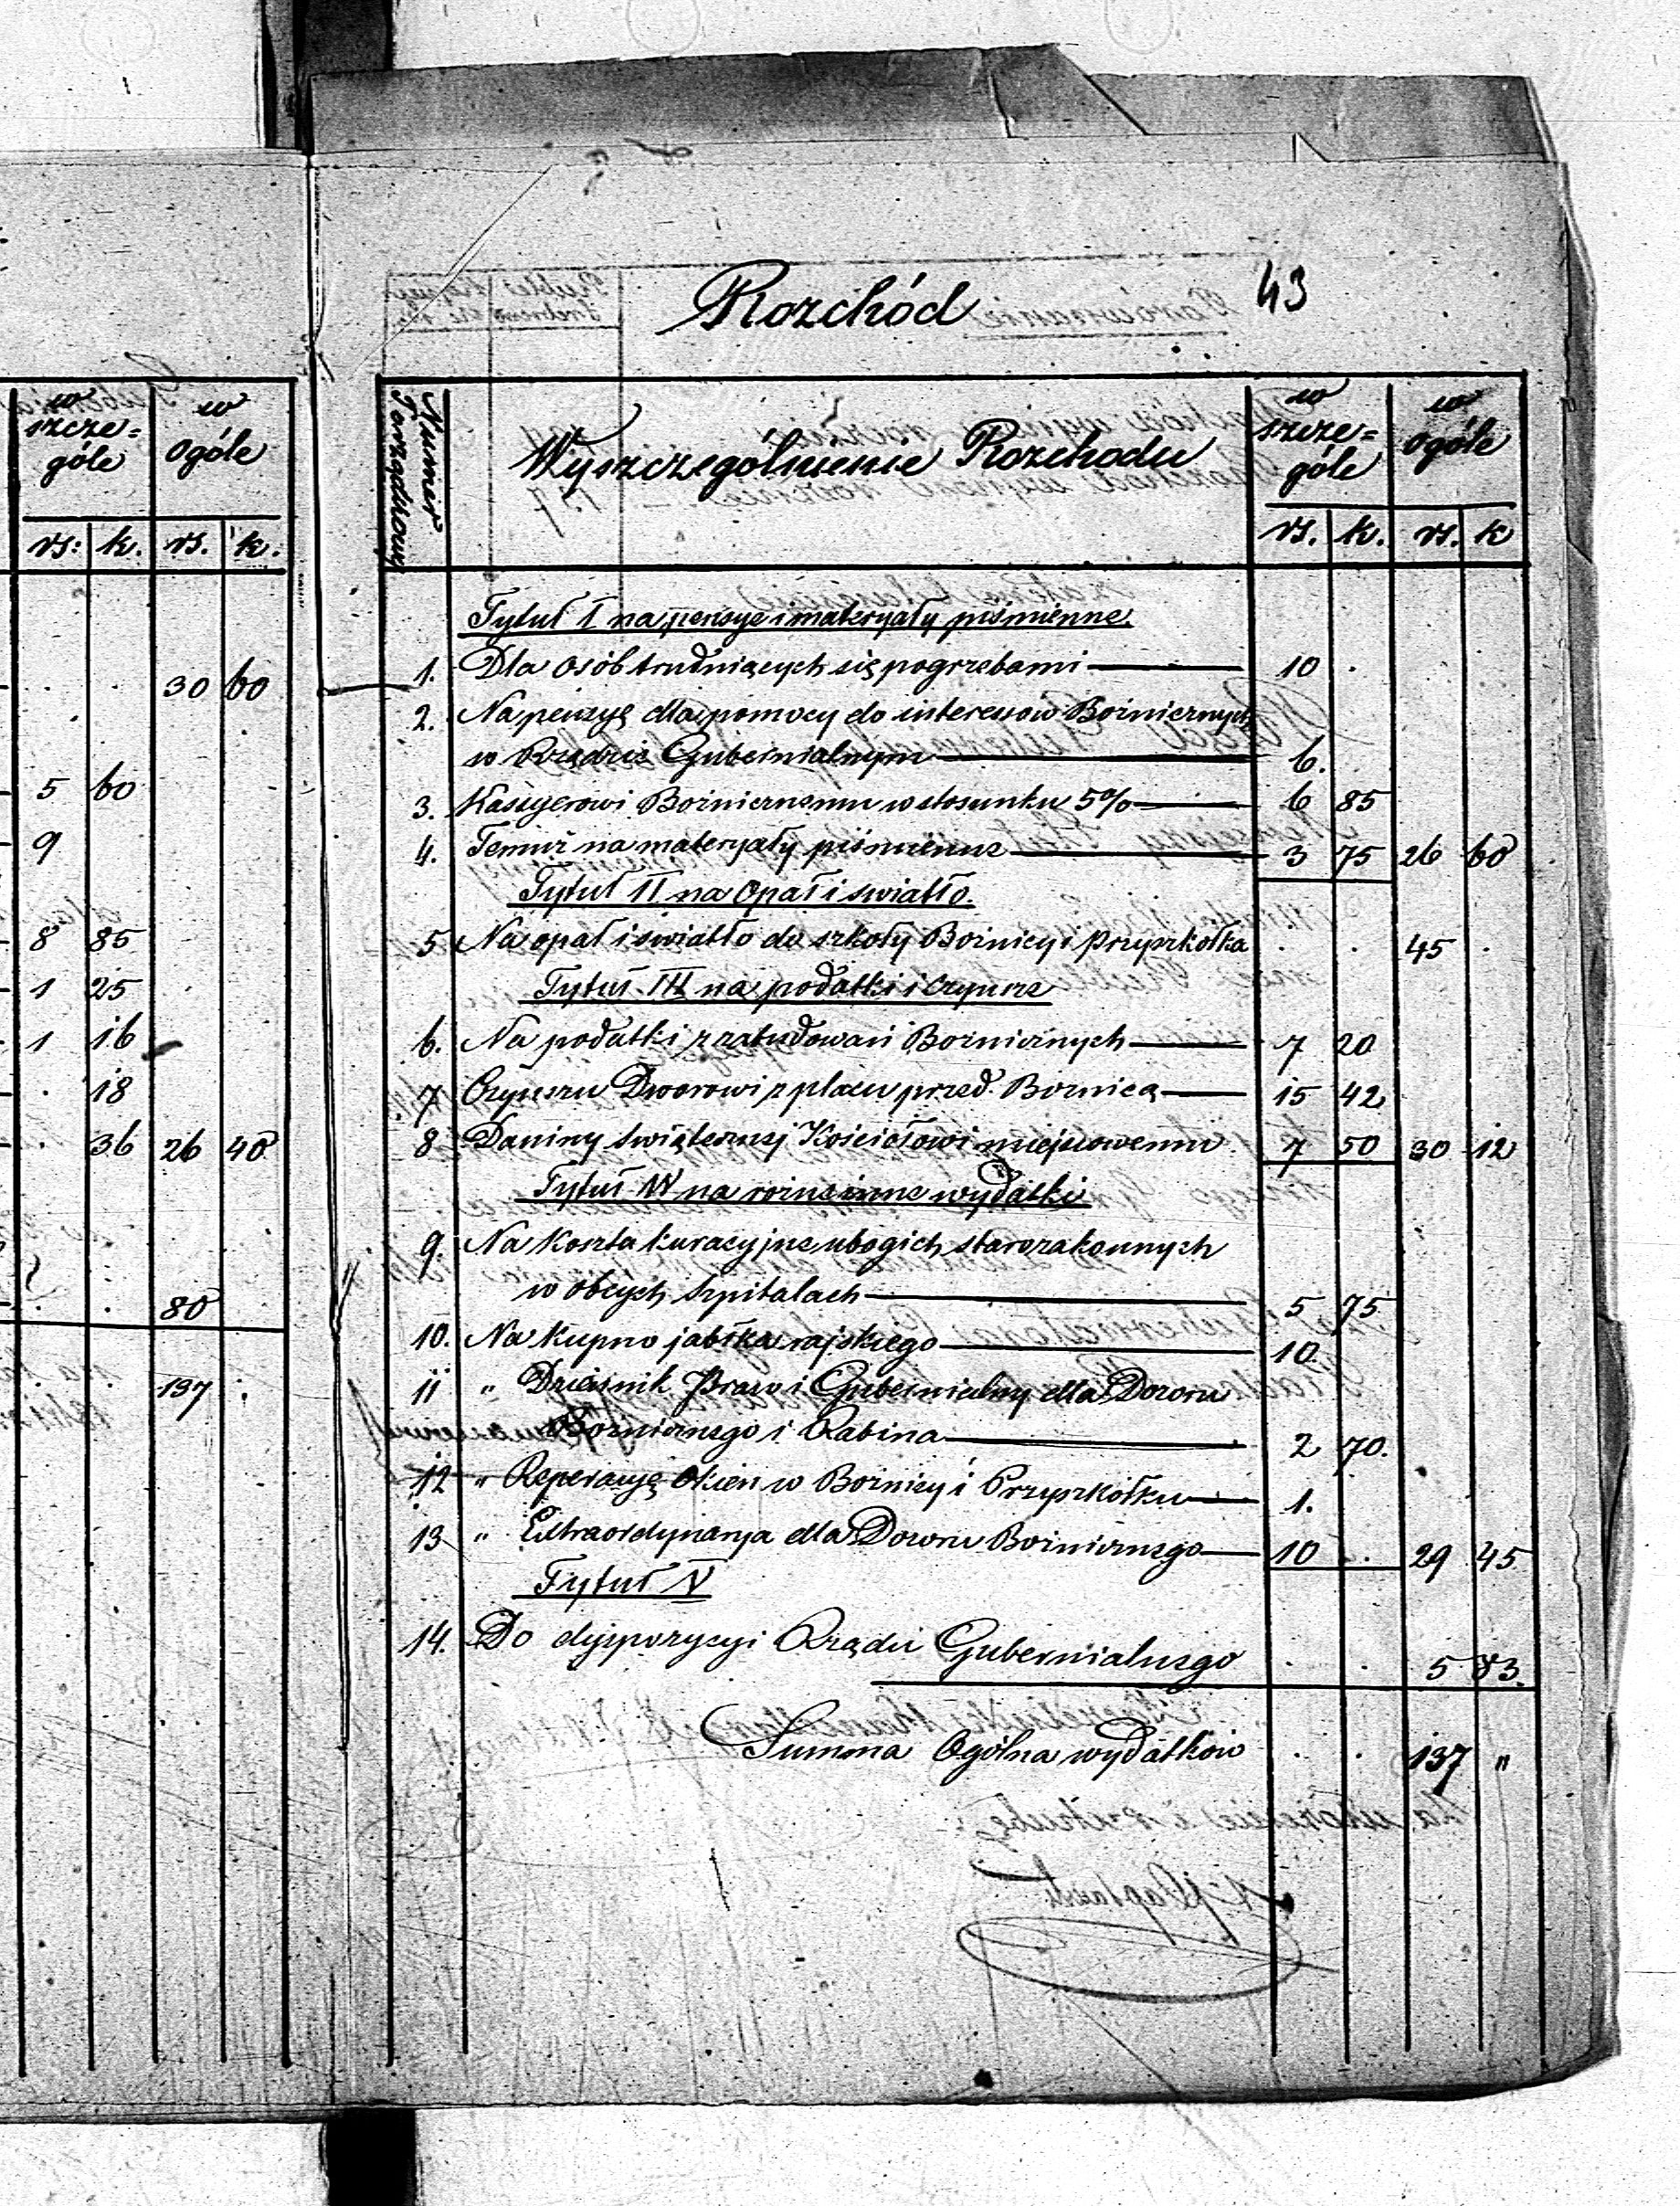 w szcze=
góle
w
ogóle
rs: k. rs. k.
. . 30 60
5 60
9
8 85
1 25
1 16
. 18
. 36 26 40
. . 80
137 .
Rozchód
43
Numer
Porządkowy
Wyszczególnienie Rozchodu
w
szcze=
góle
w
ogóle
rs. k. rs. k
Tytuł I na pensye i materyały piśmienne.
1. Dla osób trudniących się pogrzebami — 10 .
2. Na penzyę dla pomocy do interessow Bożniczych
w Rządzie Gubernialnym — 6. .
3. Kassyerowi Bożnicznemu w stosunku 5% — 6 85
4. Temuż na materyały piśmienne — 3 75 26 60
Tytuł II na opał i swiatło.
5 Na opał i światło do szkoły Bożnicy i Przyszkołka . . 45 .
Tytuł III na podatki i czynsze
6. Na podatki z zabudowań Bożnicznych — 7 20
7 Czynszu Dworowi z placu przed Bożnicą — 15 42
8 Daniny świątecznej Kościołowi miejscowemu 7 50 30 12
Tytuł IV na rożne inne wydatki
9. Na koszta kuracyjne ubogich starozakonnych
w obcych szpitalach — 5 75
10. Na kupno jabłka rajskiego — 10.
11 " Dziennik Praw i Gubernialny dla Dozoru
Bożnicznego i Rabina — 2 70.
12 " Reperacyę okien w Bożnicy i Przyszkołku — 1.
13 " Extraordynarya dla Dozoru Bożnicznego — 10 . 29 45
Tytuł V
14. Do dyspozycyi Rządu Gubernialnego . . 5 83.
Summa Ogólna wydatków . . 137 "